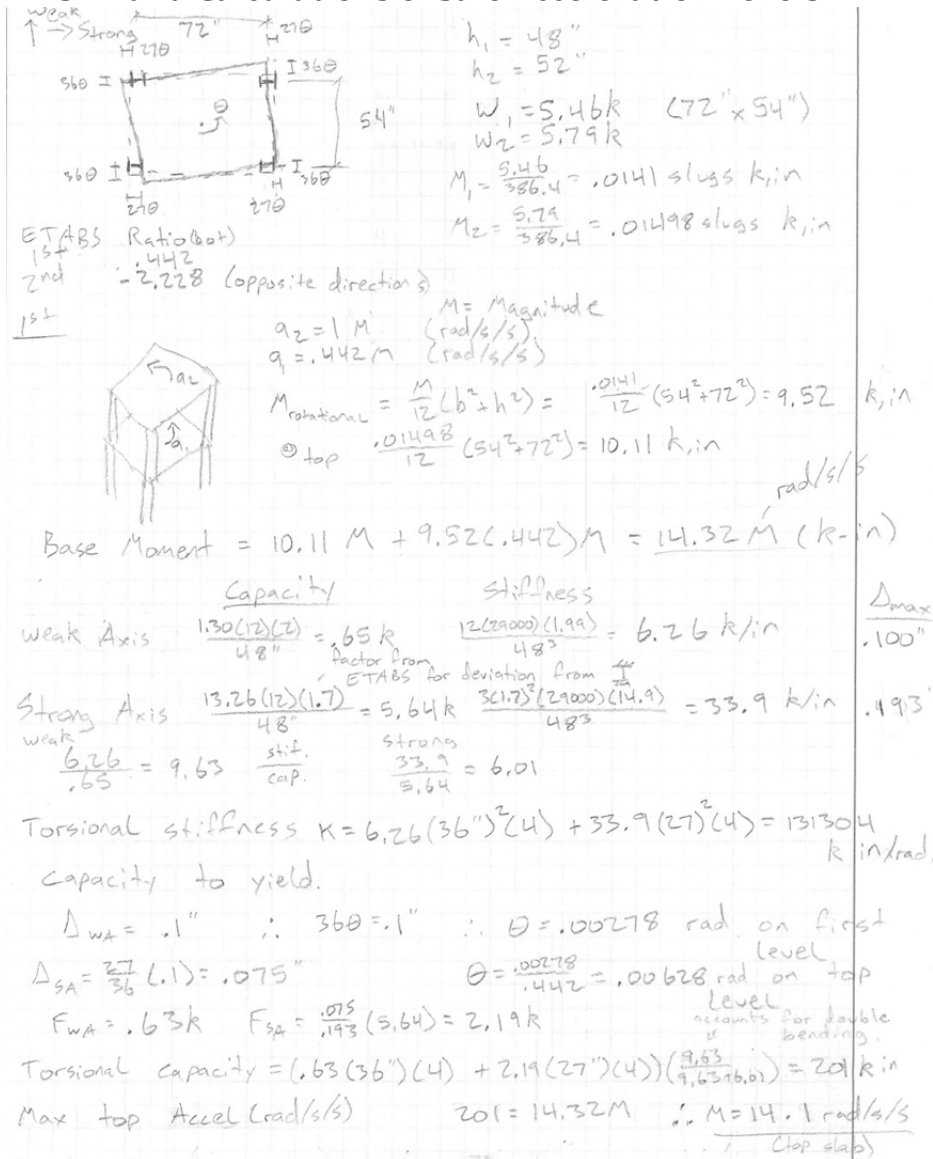 weak
↑ → Strong 72" 27θ
27θ
36θ I I 36θ
θ 54"
36θ I I 36θ
27θ 27θ
h₁ = 48"
h₂ = 52"
W₁ = 5.46k (72" x 54")
W₂ = 5.79k
M₁ = 5.46/386.4 = .0141 slugs k,in
M₂ = 5.79/386.4 = .01498 slugs k,in
ETABS Ratio(bot)
1st .442
2nd -2.228 (opposite directions)
M = Magnitude
1st
a₂ = 1 M (rad/s/s)
a₁ = .442 M (rad/s/s)
a₂
a₁
M rotational = M/12 (b² + h²) = .0141/12 (54² + 72²) = 9.52 k,in
@ top .01498/12 (54² + 72²) = 10.11 k,in
rad/s/s
Base Moment = 10.11 M + 9.52(.442)M = 14.32 M (k-in)
Capacity Stiffness Δmax
Weak Axis 1.30(12)(2)/48" = .65 k 12(29000)(1.99)/48³ = 6.26 k/in .100"
factor from
ETABS for deviation from
Strong Axis 13.26(12)(1.7)/48" = 5.64k 3(1.7)²(29000)(14.9)/48³ = 33.9 k/in .193
weak strong
6.26/.65 = 9.63 stif./cap. 33.9/5.64 = 6.01
Torsional stiffness K = 6.26(36")²(4) + 33.9(27)²(4) = 131304
k in/rad.
capacity to yield.
Δ WA = .1" ∴ 36θ = .1" ∴ θ = .00278 rad on first
level
Δ SA = 27/36 (.1) = .075" θ = .00278/.442 = .00628 rad on top
level
F WA = .63k F SA = .075/.193 (5.64) = 2.19k
accounts for double
bending.
Torsional capacity = (.63(36")(4) + 2.19(27")(4))(9.63/9.63+6.01) = 201 k in
Max top Accel (rad/s/s) 201 = 14.32M ∴ M = 14.1 rad/s/s
(top slab)